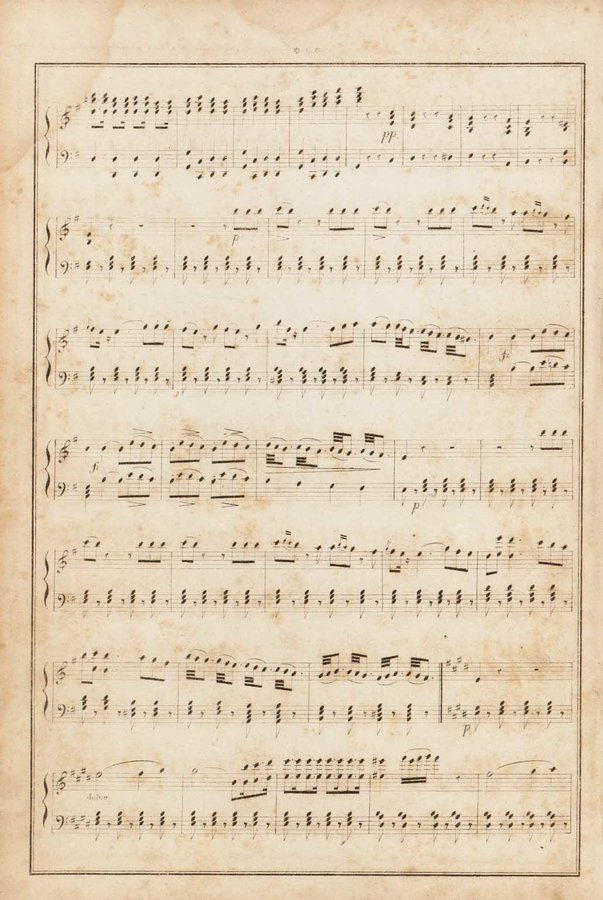 pp
p
f
f
p
p
dolce